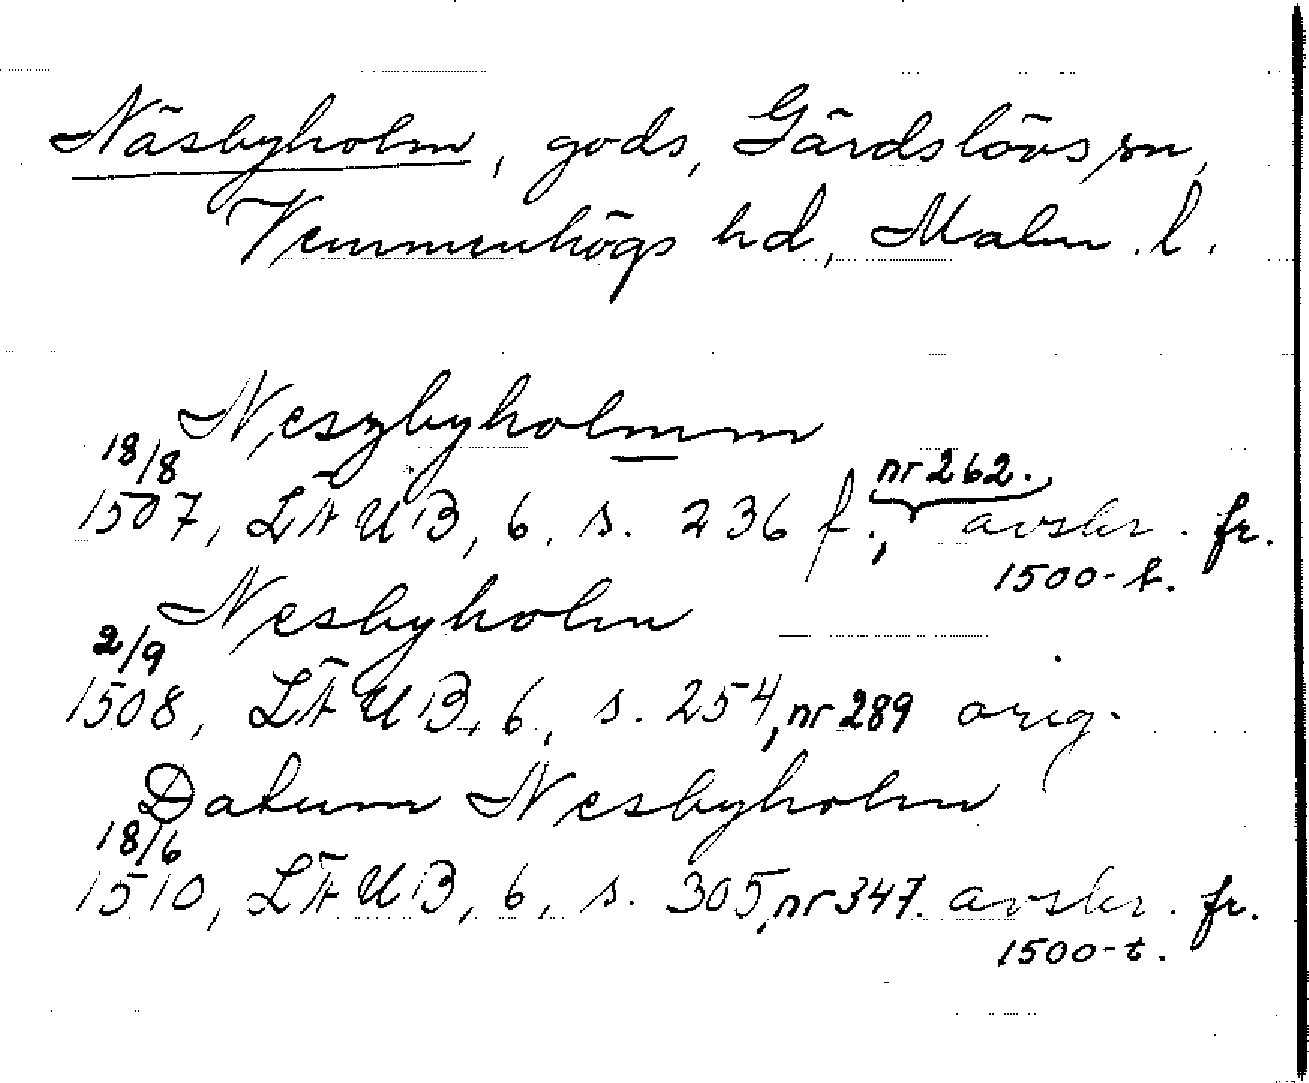 Näsbyholm, gods, Gärdslövs sn,
Vemmenhögs hd, Malm. l.
Neszbyholmm
18/8
1507, LÄUB, 6, s. 236 f., nr 262. avskr. fr.
1500-t.
Nesbyholm
2/9
1508, LÄUB, 6, s. 254, nr 289 orig.
Datum Nesbyholm
18/6
1510, LÄUB, 6, s. 305, nr 347. avskr. fr.
1500-t.